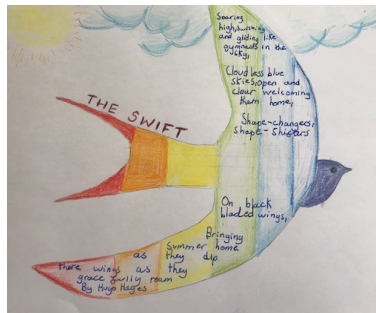 THE SWIFT
Soaring
high, turning,
and gliding like
gymnasts in the
sky,
Cloudless blue
skies, open and
clear welcoming
them home,
Shape-changers,
shape-shifters
On black
bladed wings,
Bringing
summer home
as they dip
there wings as they
gracefully roam
By Hugo Hages